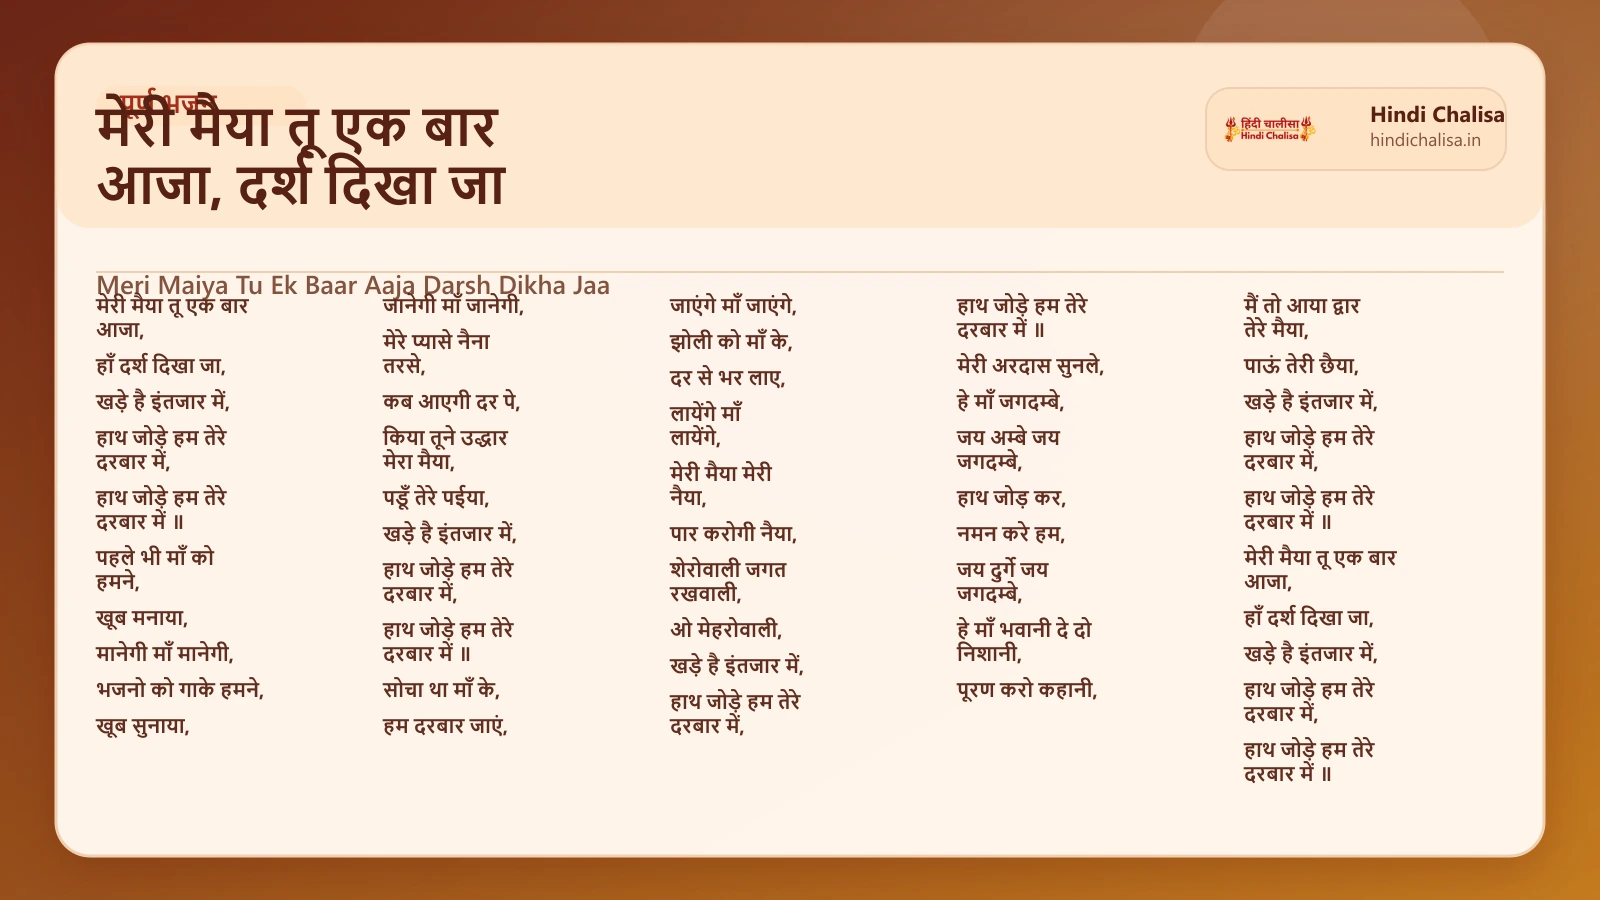 पूर्ण भजन
मेरी मैया तू एक बार
आजा, दर्श दिखा जा
हिंदी चालीसा
Hindi Chalisa
Hindi Chalisa
hindichalisa.in
Meri Maiya Tu Ek Baar Aaja Darsh Dikha Jaa
मेरी मैया तू एक बार
आजा,
हाँ दर्श दिखा जा,
खड़े है इंतजार में,
हाथ जोड़े हम तेरे
दरबार में,
हाथ जोड़े हम तेरे
दरबार में ॥
पहले भी माँ को
हमने,
खूब मनाया,
मानेगी माँ मानेगी,
भजनो को गाके हमने,
खूब सुनाया,
जानेगी माँ जानेगी,
मेरे प्यासे नैना
तरसे,
कब आएगी दर पे,
किया तूने उद्धार
मेरा मैया,
पडूँ तेरे पईया,
खड़े है इंतजार में,
हाथ जोड़े हम तेरे
दरबार में,
हाथ जोड़े हम तेरे
दरबार में ॥
सोचा था माँ के,
हम दरबार जाएं,
जाएंगे माँ जाएंगे,
झोली को माँ के,
दर से भर लाए,
लायेंगे माँ
लायेंगे,
मेरी मैया मेरी
नैया,
पार करोगी नैया,
शेरोवाली जगत
रखवाली,
ओ मेहरोवाली,
खड़े है इंतजार में,
हाथ जोड़े हम तेरे
दरबार में,
हाथ जोड़े हम तेरे
दरबार में ॥
मेरी अरदास सुनले,
हे माँ जगदम्बे,
जय अम्बे जय
जगदम्बे,
हाथ जोड़ कर,
नमन करे हम,
जय दुर्गे जय
जगदम्बे,
हे माँ भवानी दे दो
निशानी,
पूरण करो कहानी,
मैं तो आया द्वार
तेरे मैया,
पाऊं तेरी छैया,
खड़े है इंतजार में,
हाथ जोड़े हम तेरे
दरबार में,
हाथ जोड़े हम तेरे
दरबार में ॥
मेरी मैया तू एक बार
आजा,
हाँ दर्श दिखा जा,
खड़े है इंतजार में,
हाथ जोड़े हम तेरे
दरबार में,
हाथ जोड़े हम तेरे
दरबार में ॥